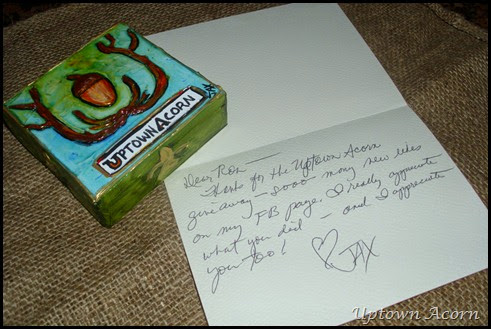 UPTOWN ACORN
Dear Ron —
Thanks for the Uptown Acorn
giveaway — sooo many new likes
on my FB page. I really appreciate
what you did — and I appreciate
you too!
JAX
Uptown Acorn